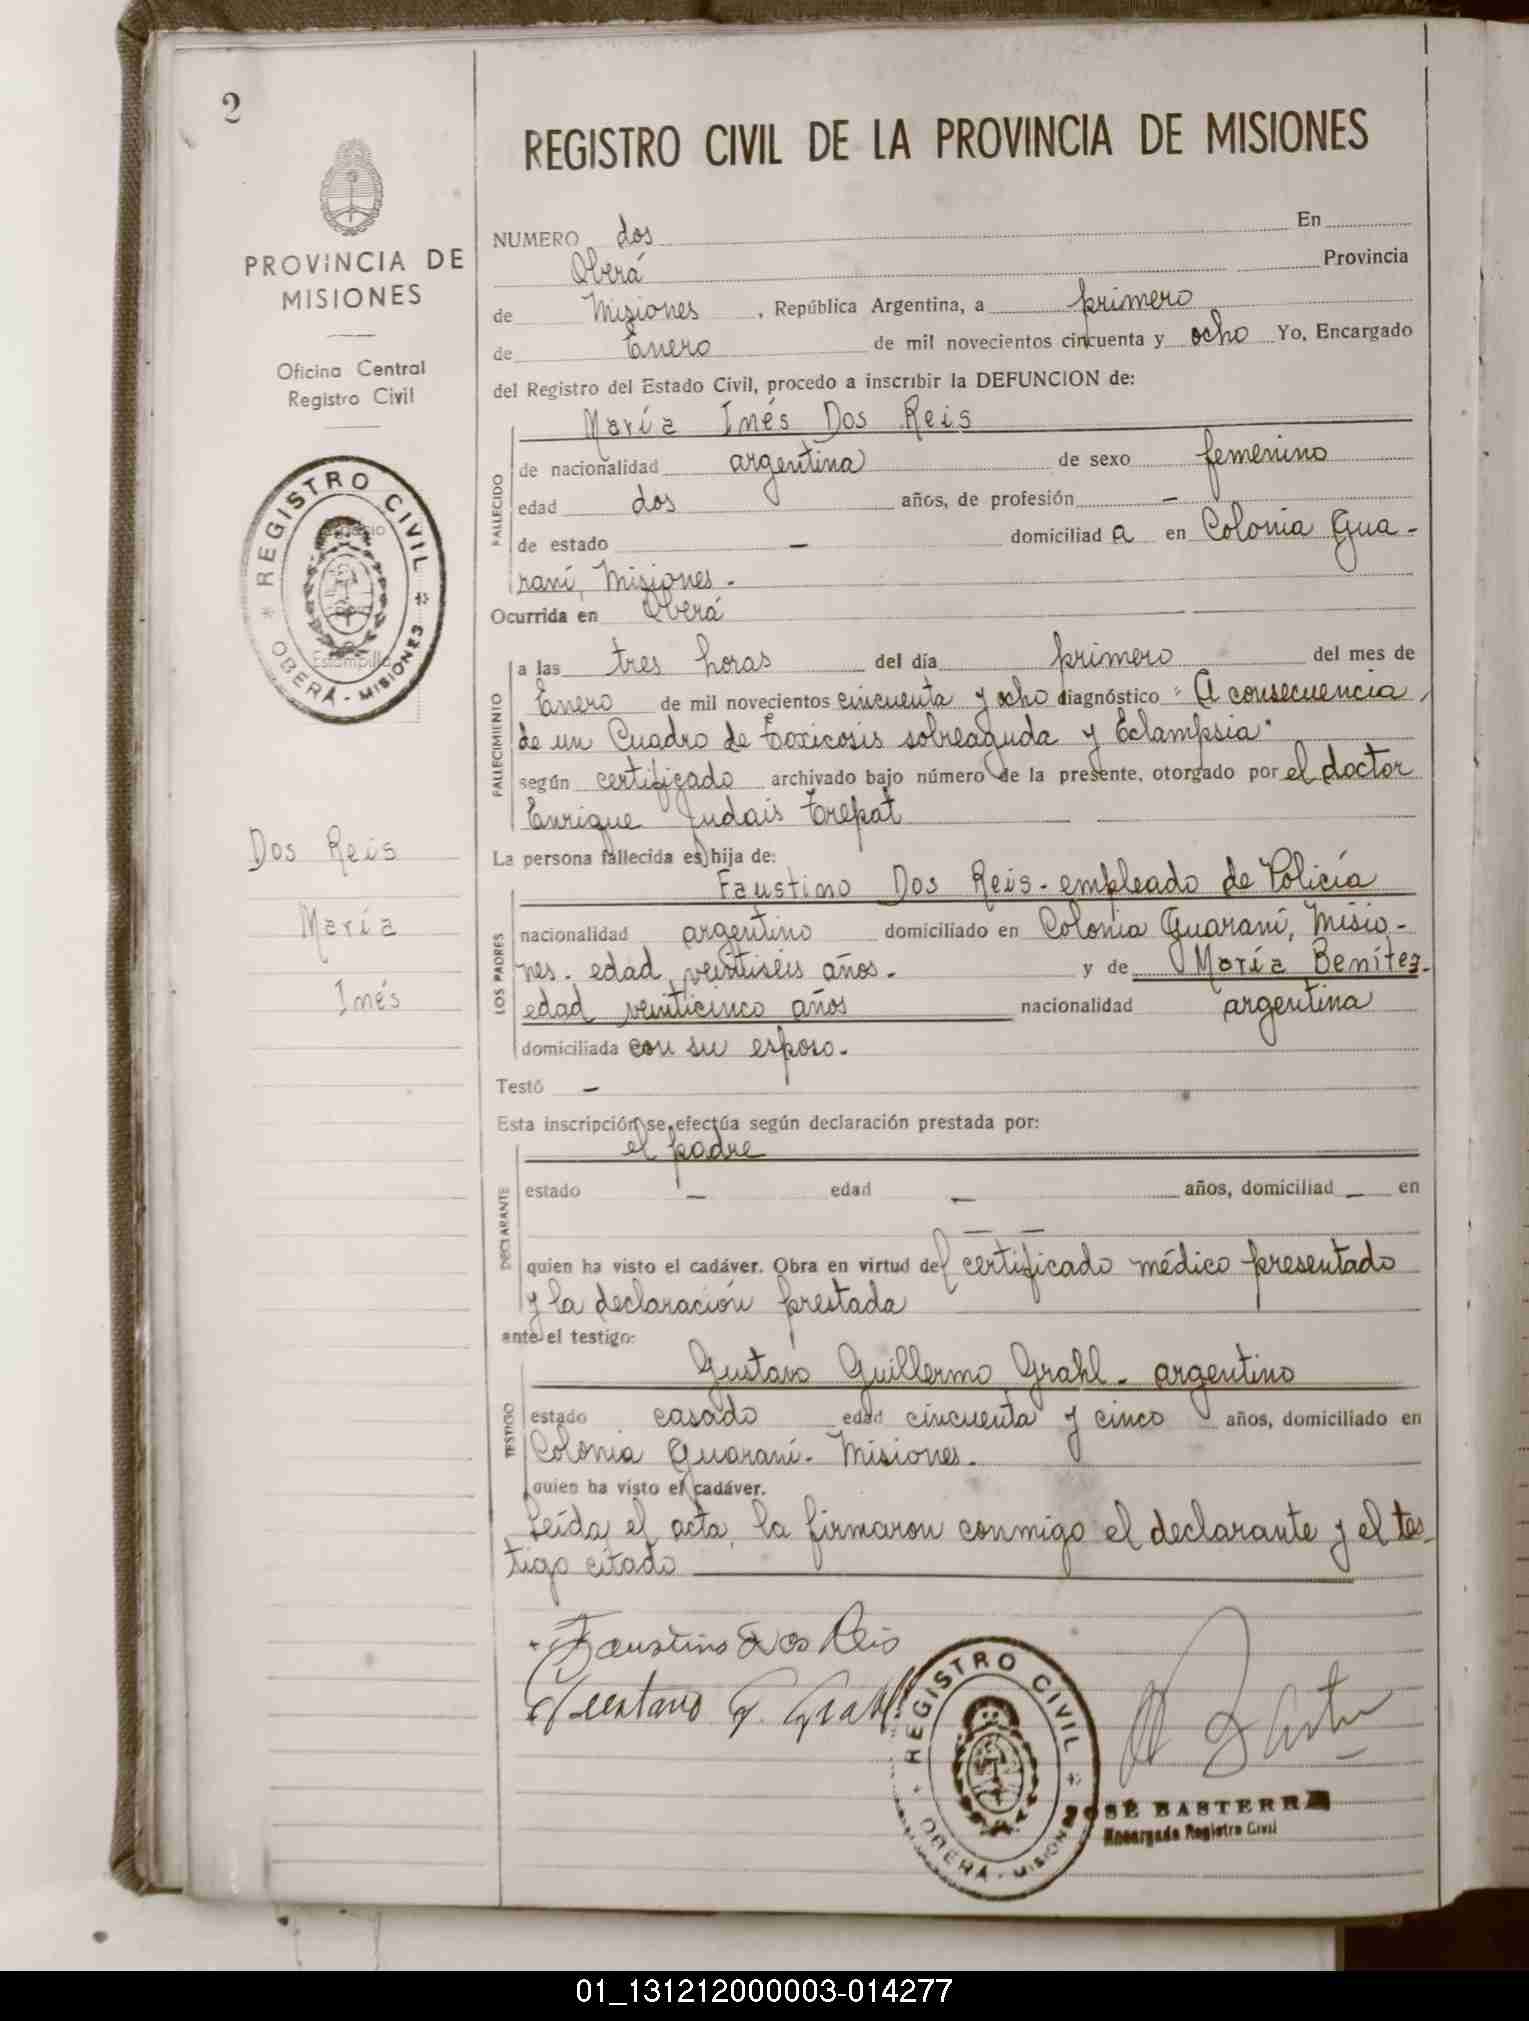 2
PROVINCIA DE
MISIONES
Oficina Central
Registro Civil
REGISTRO CIVIL
OBERÁ - MISIONES
Estampilla
Dos Reis
María
Inés
REGISTRO CIVIL DE LA PROVINCIA DE MISIONES
NUMERO dos En
Oberá Provincia
de Misiones, República Argentina, a primero
de Enero de mil novecientos cincuenta y ocho Yo, Encargado
del Registro del Estado Civil, procedo a inscribir la DEFUNCION de:
María Inés Dos Reis
FALLECIDO
de nacionalidad argentina de sexo femenino
edad dos años, de profesión -
de estado - domiciliad a en Colonia Gua-
raní, Misiones.
Ocurrida en Oberá
FALLECIMIENTO
a las tres horas del día primero del mes de
Enero de mil novecientos cincuenta y ocho diagnóstico "A consecuencia
de un Cuadro de toxicosis sobreaguda y Eclampsia"
según certificado archivado bajo número de la presente, otorgado por el doctor
Enrique Judais Trepat
La persona fallecida es hija de:
LOS PADRES
Faustino Dos Reis - empleado de Policía
nacionalidad argentino domiciliado en Colonia Guaraní, Misio-
nes. edad veintiseis años. y de María Benítez.
edad veinticinco años nacionalidad argentina
domiciliada con su esposo.
Testó -
Esta inscripción se efectúa según declaración prestada por:
DECLARANTE
el padre
estado - edad - años, domiciliad - en
- -
quien ha visto el cadáver. Obra en virtud del certificado médico presentado
y la declaración prestada
ante el testigo:
TESTIGO
Gustavo Guillermo Grahl - argentino
estado casado edad cincuenta y cinco años, domiciliado en
Colonia Guaraní. Misiones.
quien ha visto el cadáver.
Leída el acta, la firmaron conmigo el declarante y el tes-
tigo citado
Faustino Dos Reis
Gustavo G. Grahl
REGISTRO CIVIL
OBERÁ - MISIONES
JOSÉ BASTERRA
Encargado Registro Civil
01_131212000003-014277